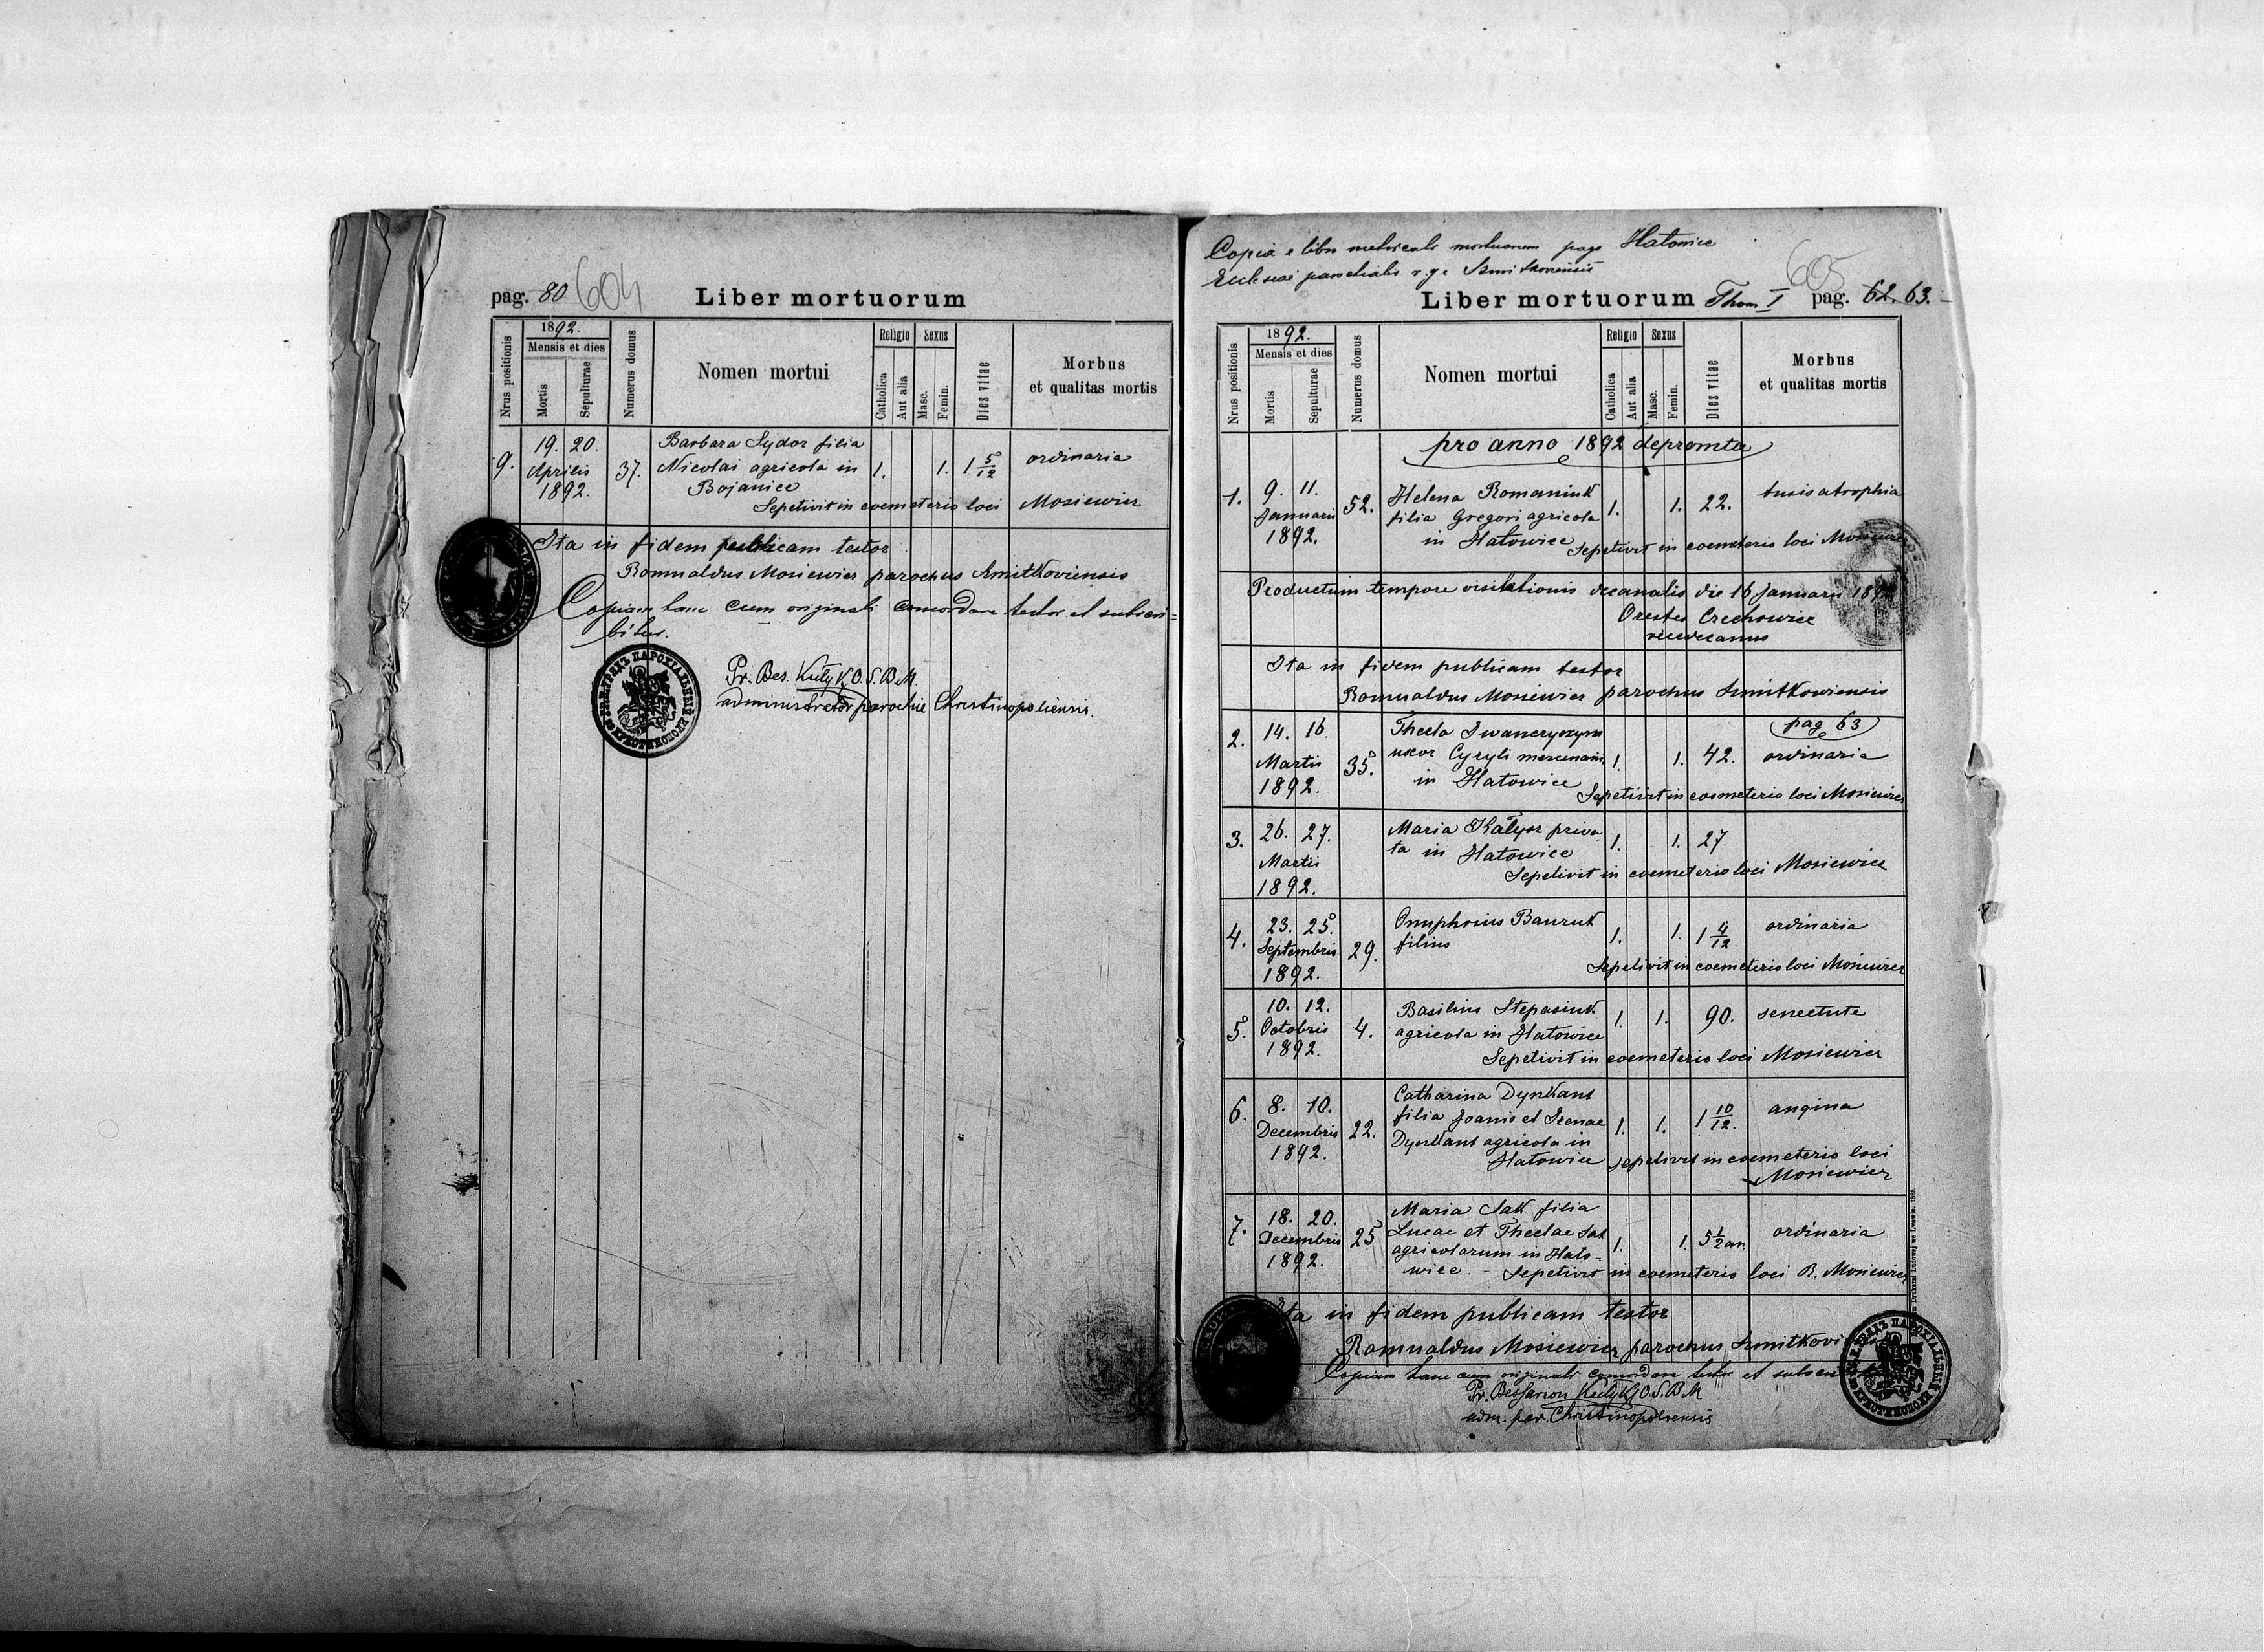 pag. 80
604
Liber mortuorum
Nrus positionis
1892.
Mensis et dies
Mortis
Sepulturae
Numerus domus
Nomen mortui
Religio
Catholica
Aut alia
Sexus
Masc.
Femin.
Dies vitae
Morbus
et qualitas mortis
9. 19. 20. Aprilis 1892. 37.
Barbara Sydor filia
Nicolai agricola in
Bojanice
1. 1. 1 5/12 ordinaria
Sepelivit in coemeterio loci Mosiewicz
Ita in fidem publicam testor
Romualdus Mosiewicz parochus Smitkoviensis
Copiam hanc cum originali concordare testor et subscri=
bitur.
Pr. Bes. Kutyk O.S.B.M.
administrator parochie Christinopoliensis.
Copia e libro metricali mortuorum pago Hatowice
Ecclesiae parochialis r.g. Smitkoviensis
605
Liber mortuorum Thom I pag. 62. 63.
Nrus positionis
1892.
Mensis et dies
Mortis
Sepulturae
Numerus domus
Nomen mortui
Religio
Catholica
Aut alia
Sexus
Masc.
Femin.
Dies vitae
Morbus
et qualitas mortis
pro anno 1892 depromta
1. 9. 11. Januarii 1892. 52.
Helena Romaniuk
filia Gregori agricola
in Hatowice
1. 1. 22. tusis atrophia
Sepelivit in coemeterio loci Mosiewicz
Productum tempore visitationis decanalis die 16 Januarii
Orestes Czechowicz
vicedecanus
Ita in fidem publicam testor
Romualdus Mosiewicz parochus Smitkowiensis
pag 63
2. 14. 16. Martii 1892. 35.
Thecla Iwanczyszyn
uxor Cyryli mercenarii
in Hatowice
1. 1. 42. ordinaria
Sepelivit in coemeterio loci Mosiewicz
3. 26. 27. Martii 1892.
Maria Kałysz priva
ta in Hatowice
1. 1. 27.
Sepelivit in coemeterio loci Mosiewicz
4. 23. 25. Septembris 1892. 29.
Onuphrius Baurut
filius
1. 1. 1 4/12
ordinaria
Sepelivit in coemeterio loci Mosiewicz
5. 10. 12. Octobris 1892. 4.
Basilius Stepasiuk
agricola in Hatowice
1. 1. 90. senectute
Sepelivit in coemeterio loci Mosiewicz
6. 8. 10. Decembris 1892. 22.
Catharina Dynkant
filia Joanis et Irenae
Dynkant agricola in
Hatowice
1. 1. 1 10/12. angina
sepelivit in coemeterio loci
Mosiewicz
7. 18. 20. Decembris 1892. 25
Maria Sak filia
Lucae et Theclae Sak
agricolarum in Hato-
wice
1. 1. 5 1/2 an ordinaria
Sepelivit in coemeterio loci R. Mosiewicz
Ita in fidem publicam testor
Romualdus Mosiewicz parochus Smitkovi
Copiam hanc cum originali concordare testor et subscri
Pr. Bessarion Kutyk O.S.B.M
adm. par. Christinopoliensis